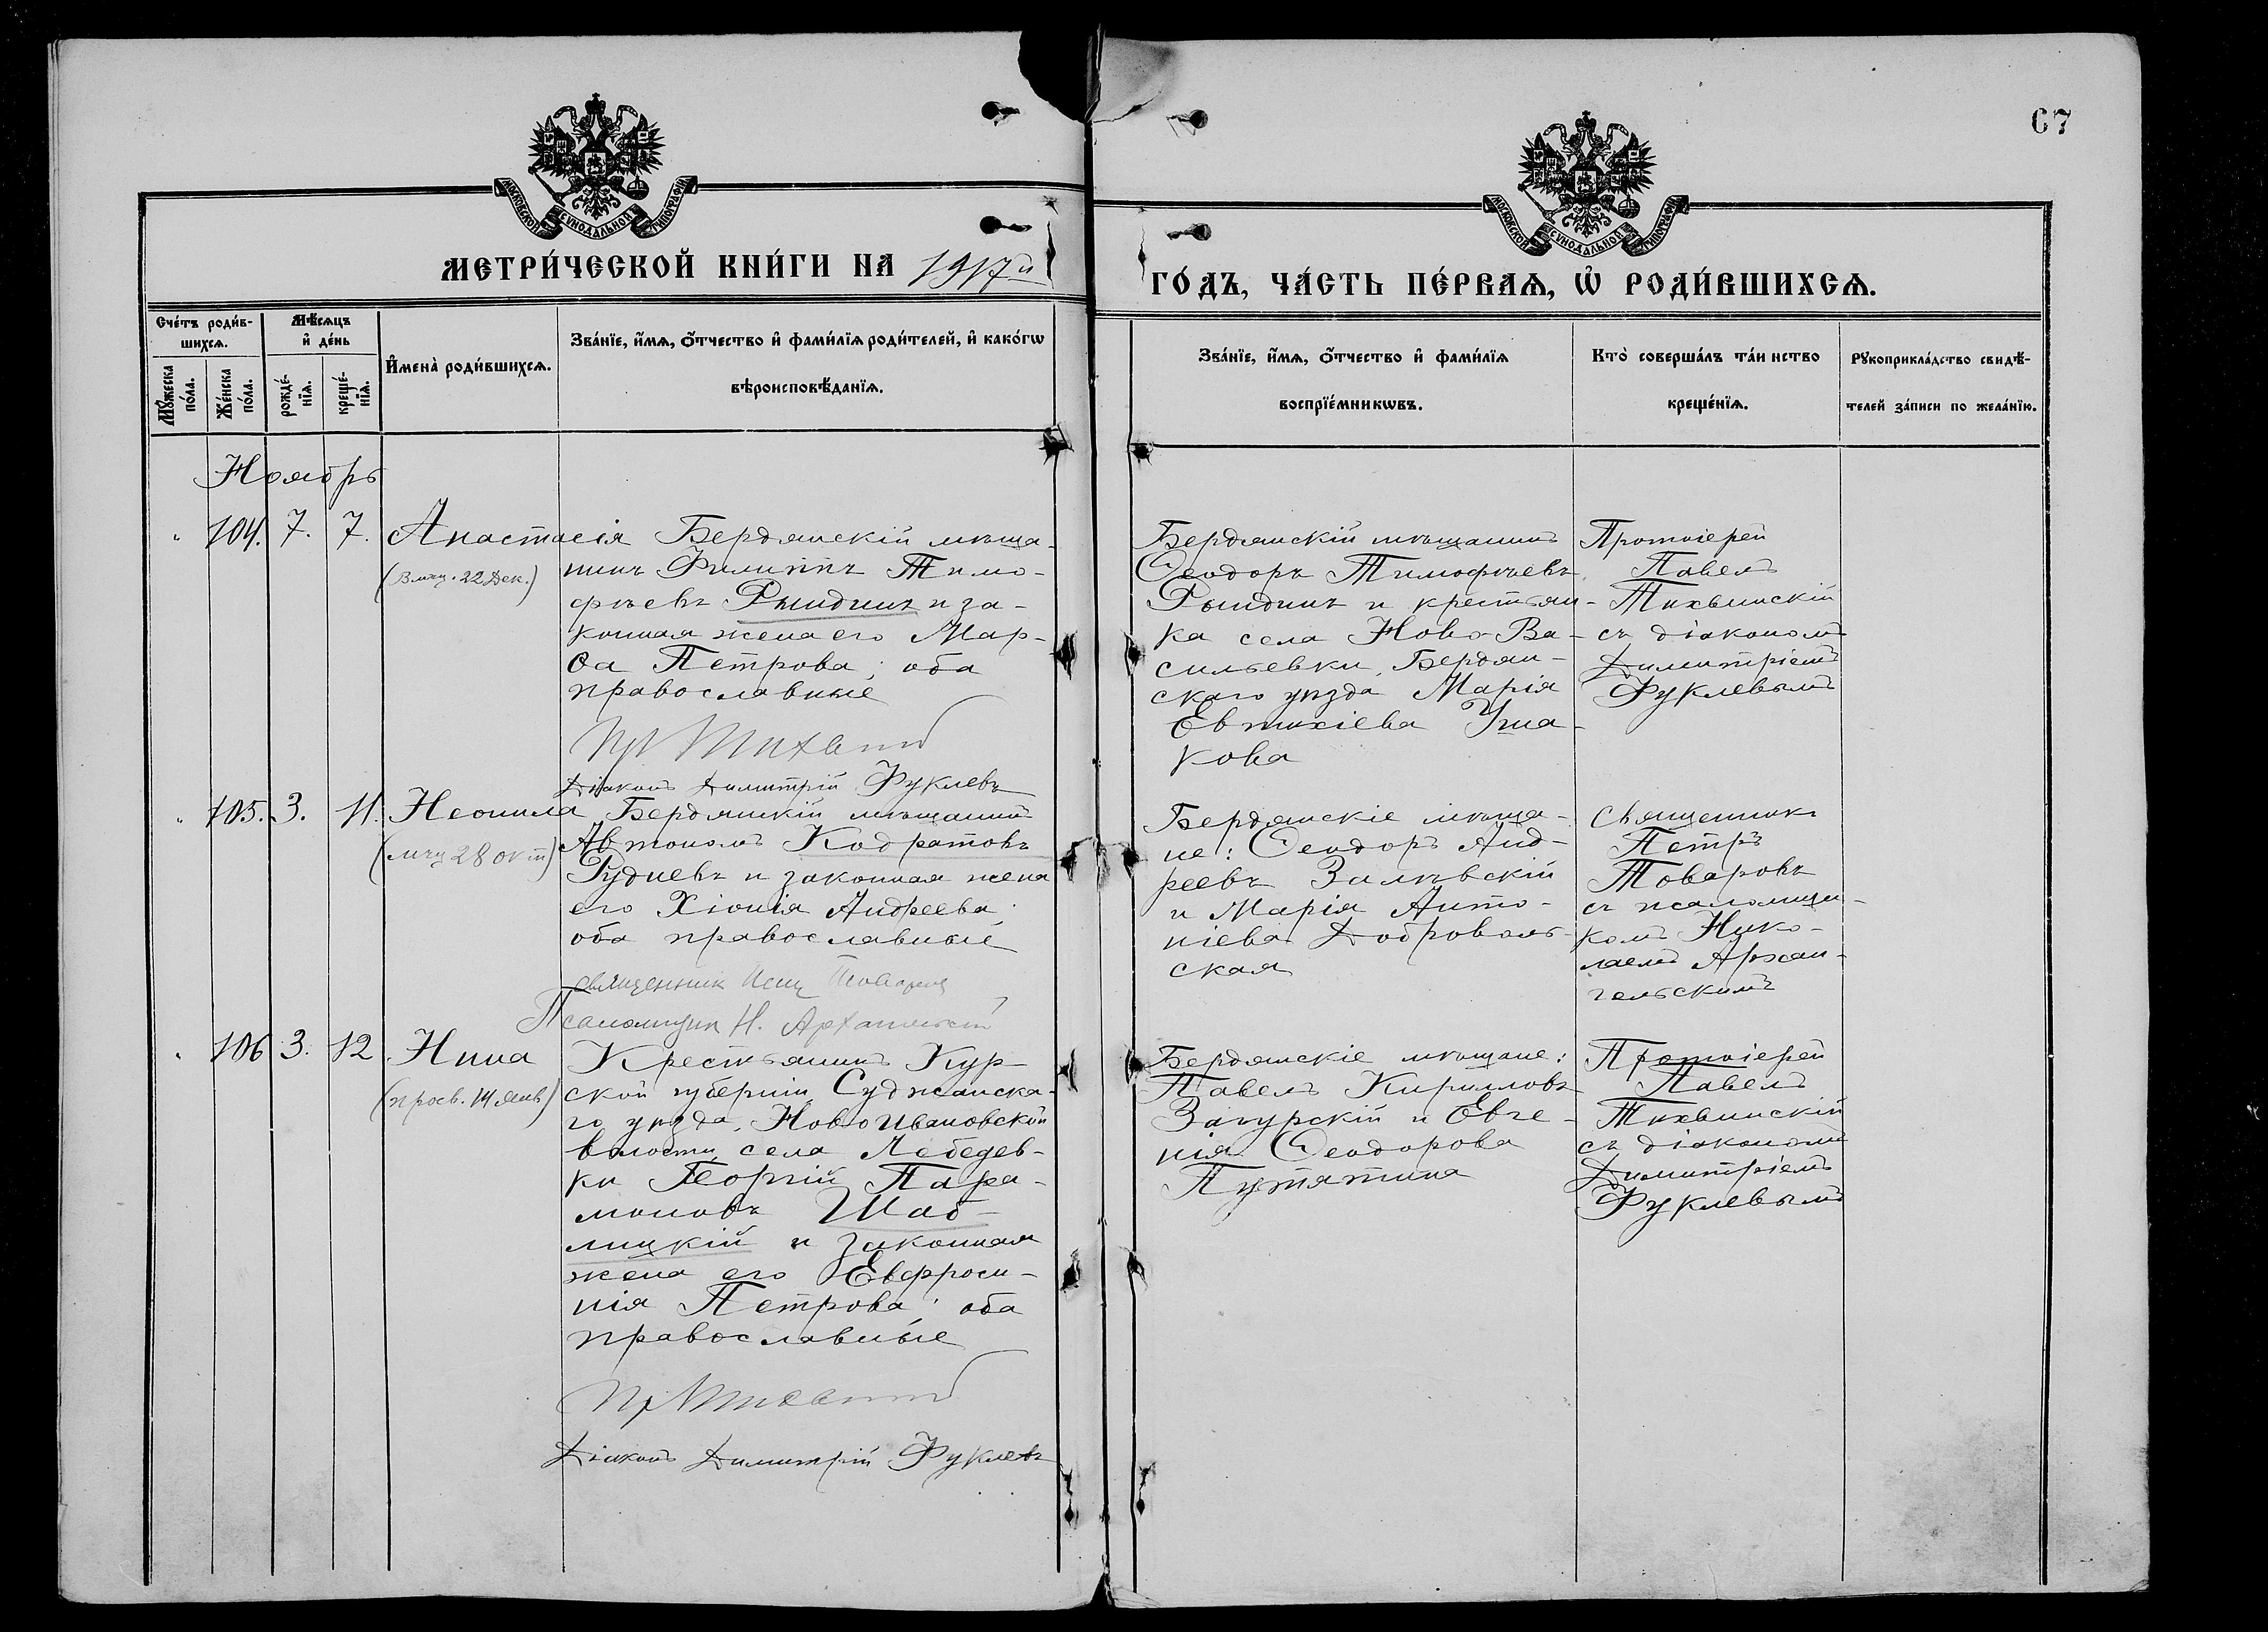 67
МОСКОВСКОЙ СѴНОДАЛЬНОЙ ТИПОГРАФІИ
МОСКОВСКОЙ СѴНОДАЛЬНОЙ ТИПОГРАФІИ
МЕТРИ́ЧЕСКОЙ КНИ́ГИ НА 1917 й
ГО́ДЪ, ЧА́СТЬ ПЕ́РВАѦ, Ѡ҆ РОДИ́ВШИХСѦ.
Сче́тъ роди́в-
шихсѧ.
Мѣ́сѧцъ
и҆ де́нь
Мꙋ́жеска
по́ла.
Же́нска
по́ла.
рожде́-
нїѧ.
креще́-
нїѧ.
И҆мена̀ роди́вшихсѧ.
Зва́нїе, и҆́мѧ, ѻ҆́тчество и҆ фами́лїѧ роди́телей, и҆ како́гѡ
вѣроисповѣ́данїѧ.
Зва́нїе, и҆́мѧ, ѻ҆́тчество и҆ фами́лїѧ
воспрїе́мникѡвъ.
Кто̀ соверша́лъ та́инство
креще́нїѧ.
Рꙋкоприкла́дство свидѣ́-
телей за́писи по жела́нїю.
Ноябрь
" 104. 7. 7. Анастасія
(в.мчц. 22 Дек.)
Бердянскій мѣща-
нинъ Филиппъ Тимо-
фѣевъ Рындинъ и за-
конная жена его Мар-
ѳа Петрова; оба
православные
Діаконъ Димитрій Фуклевъ
Бердянскій мѣщанинъ
Ѳеодоръ Тимофѣевъ
Рындинъ и крестьян-
ка села Ново-Ва-
сильевки, Бердян-
скаго уѣзда Марія
Евтихіева Уша-
кова
Протоіерей
Павелъ
Тихвинскій
съ діакономъ
Димитріемъ
Фуклевымъ
" 105. 3. 11. Неонила
(мчц 28 окт)
Бердянскій мѣщанинъ
Автономъ Кодратовъ
Рудневъ и законная жена
его Хіонія Андреева;
оба православные
священник Петр Товаровъ
Псаломщик Н. Архангельскій
Бердянскіе мѣща-
не: Ѳеодоръ Анд-
реевъ Залѣвскій
и Марія Анто-
ніева Доброволь-
ская
Священникъ
Петръ
Товаровъ
съ псаломщи-
комъ Нико-
лаемъ Архан-
гельскимъ
" 106 3. 12 Нина
(просв. 14 янв)
Крестьянинъ Кур-
ской губерніи, Суджанска-
го уѣзда, Ново Ивановской
волости, села Лебедев-
ки Георгій Пара-
моновъ Шаб-
лицкій и законная
жена его Евфроси-
нія Петрова; оба
православные
Діаконъ Димитрій Фуклевъ
Бердянскіе мѣщане:
Павелъ Кирилловъ
Загурскій и Евге-
нія Ѳеодорова
Путятина
Протоіерей
Павелъ
Тихвинскій
съ діакономъ
Димитріемъ
Фуклевымъ